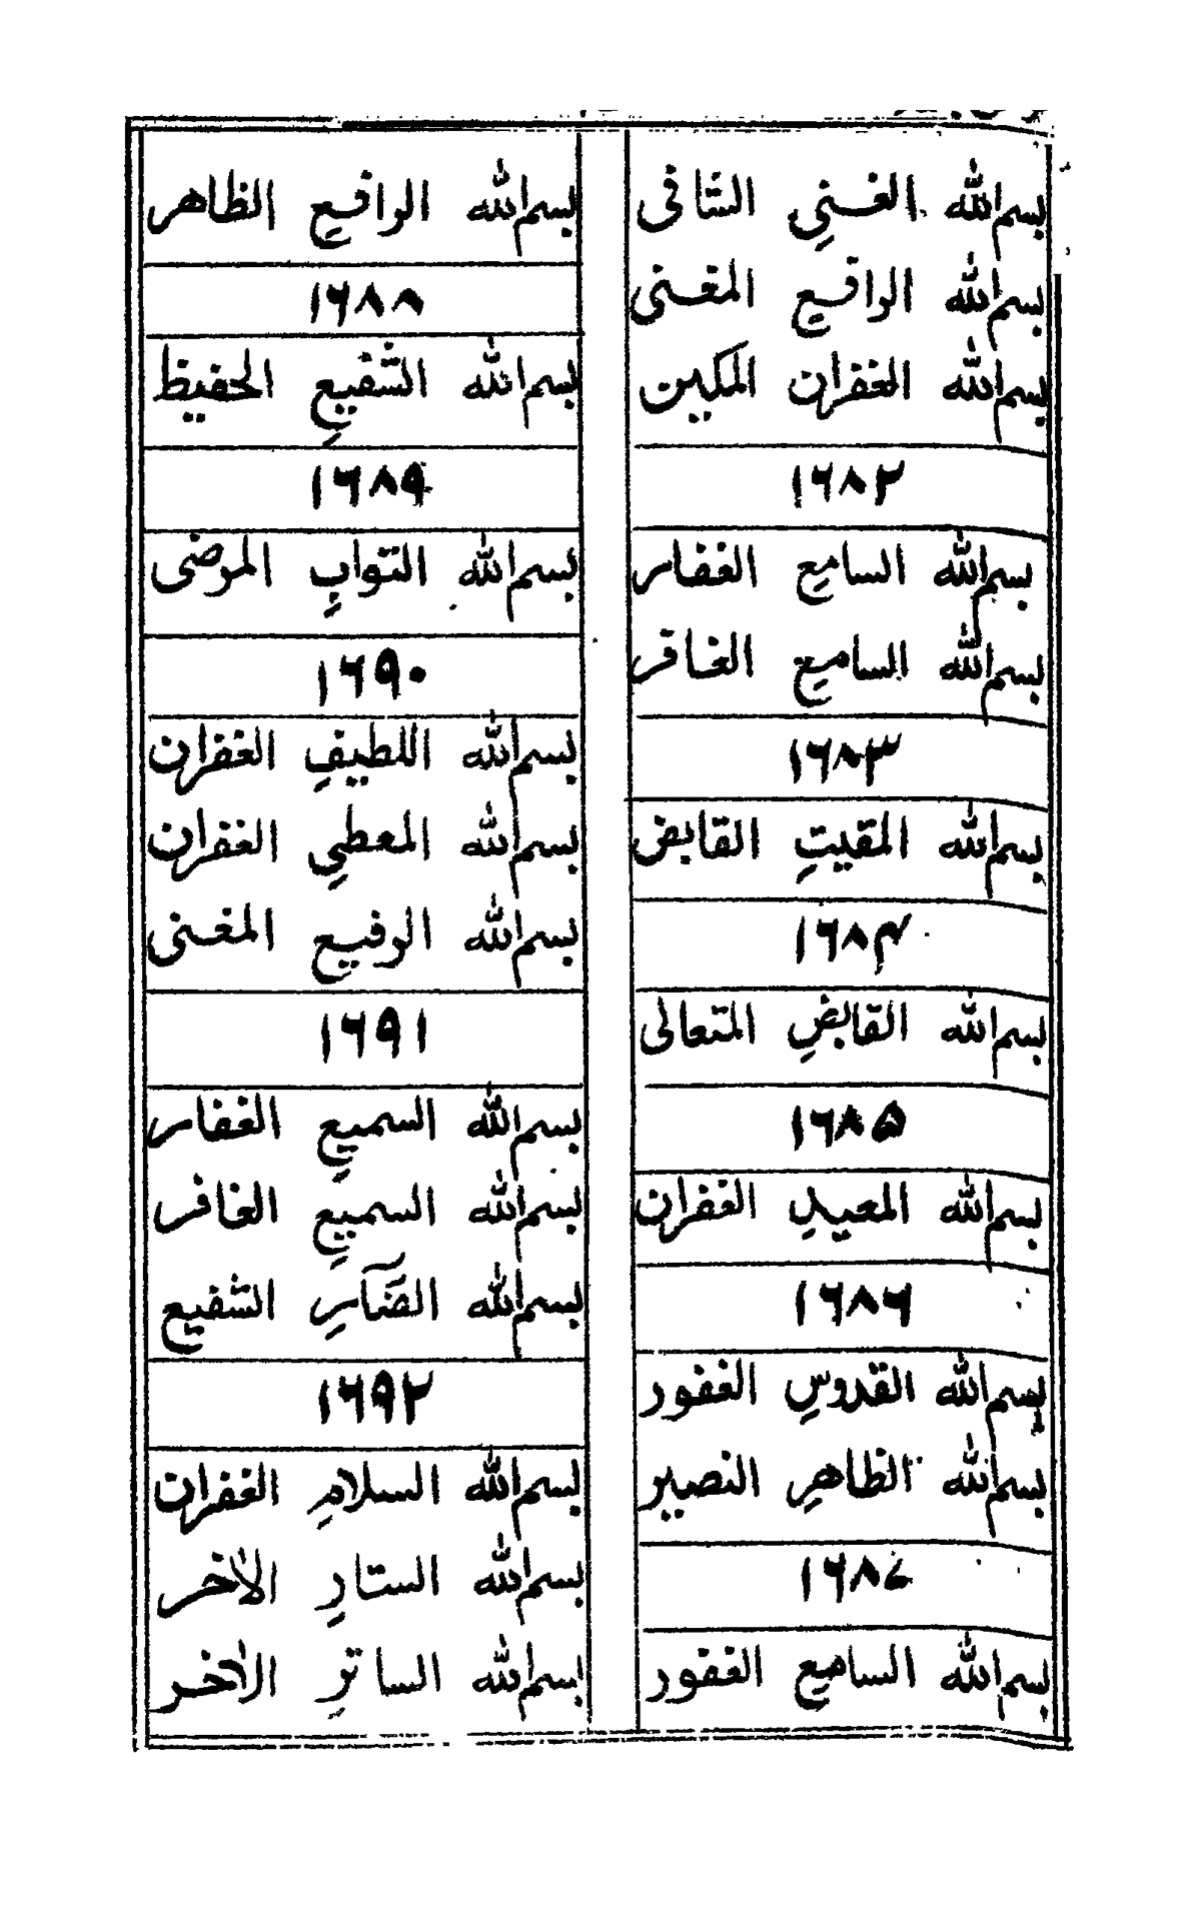 بسم الله الغني الشافی
بسم الله الواقیع المغنی
بسم الله الغفران المکین
۱۶۸۲
بسم الله السامیع الغفار
بسم الله السامیع الغافر
۱۶۸۳
بسم الله المقیتِ القابض
۱۶۸۴
بسم الله القابضِ المتعالی
۱۶۸۵
بسم الله المعیدِ الغفران
۱۶۸۶
بسم الله القدوسِ الغفور
بسم الله الظاهرِ النصیر
۱۶۸۷
بسم الله السامیع الغفور
بسم الله الواقیع الظاهر
۱۶۸۸
بسم الله الشفیعِ الحفیظ
۱۶۸۹
بسم الله التوابِ المرضی
۱۶۹۰
بسم الله اللطیفِ الغفران
بسم الله المعطيِ الغفران
بسم الله الرفیع المغنی
۱۶۹۱
بسم الله السمیعِ الغفار
بسم الله السمیعِ الغافر
بسم الله الضَّآرِ الشفیع
۱۶۹۲
بسم الله السلامِ الغفران
بسم الله الستارِ الاٰخر
بسم الله الساترِ الاٰخر